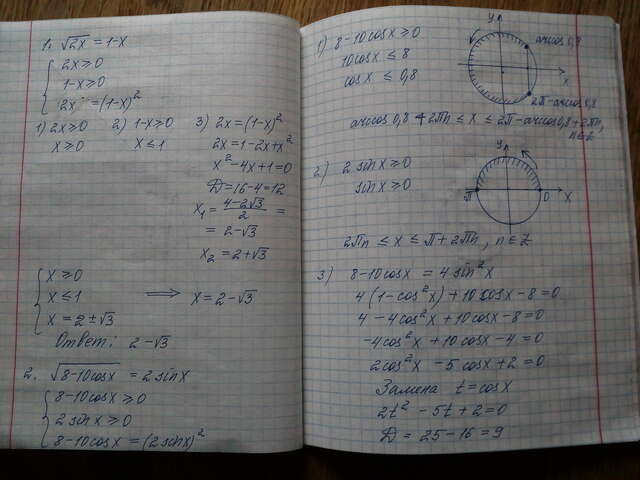 1. √2x = 1-x
{ 2x ≥ 0
1-x ≥ 0
2x = (1-x)²
1) 2x ≥ 0 2) 1-x ≥ 0 3) 2x = (1-x)²
x ≥ 0 x ≤ 1 2x = 1-2x+x²
x² - 4x + 1 = 0
D = 16-4 = 12
x₁ = (4-2√3)/2 =
= 2-√3
x₂ = 2+√3
{ x ≥ 0
x ≤ 1 ⟹ x = 2-√3
x = 2±√3
Ответ: 2-√3
2. √8-10cosx = 2sinx
{ 8-10cosx ≥ 0
2sinx ≥ 0
8-10cosx = (2sinx)²
1) 8-10cosx ≥ 0
10cosx ≤ 8
cosx ≤ 0,8
y
arccos 0,8
x
2π-arccos 0,8
arccos 0,8 + 2πn ≤ x ≤ 2π-arccos 0,8 + 2πn,
n∈Z
2) 2 sinx ≥ 0
sinx ≥ 0
y
π 0 x
2πn ≤ x ≤ π + 2πn, n∈Z
3) 8-10cosx = 4sin²x
4(1-cos²x) + 10cosx - 8 = 0
4 - 4cos²x + 10cosx - 8 = 0
-4cos²x + 10cosx - 4 = 0
2cos²x - 5cosx + 2 = 0
Замена t = cosx
2t² - 5t + 2 = 0
D = 25-16 = 9